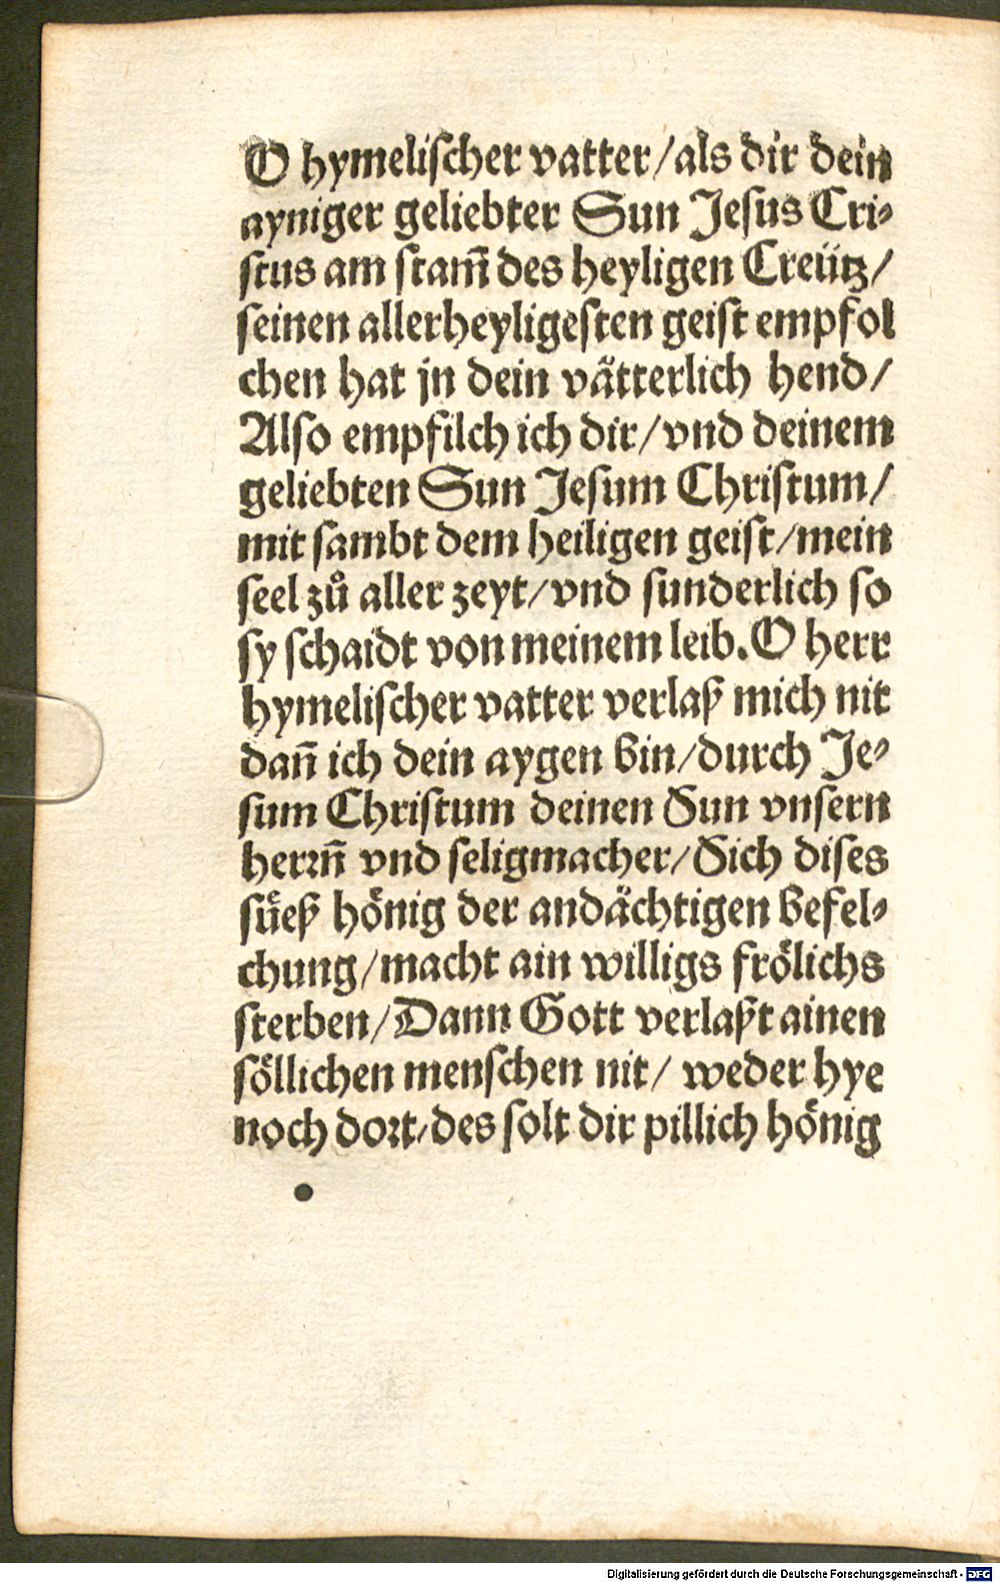 O hymeliſcher vatter/als dir dein
ayniger geliebter Sun Jeſus Cri⸗
ſtus am ſtam̃ des heyligen Creütz/
ſeinen allerheyligeſten geiſt empfol
chen hat jn dein vaͤtterlich hend/
Alſo empfilch ich dir/vnd deinem
geliebten Sun Jeſum Chriſtum/
mit ſambt dem heiligen geiſt/mein
ſeel zuͦ aller zeyt/vnd ſunderlich ſo
ſy ſchaidt von meinem leib.O herr
hymeliſcher vatter verlaß mich nit
dañ ich dein aygen bin/durch Je⸗
ſum Chriſtum deinen Sun vnſern
herꝛñ vnd ſeligmacher/Sich diſes
ſuͤeß hoͤnig der andaͤchtigen befel⸗
chung/macht ain willigs froͤlichs
ſterben/Dann Gott verlaßt ainen
ſoͤllichen menſchen nit/ weder hye
noch doꝛt/des ſolt dir pillich hoͤnig
Digitalisierung gefördert durch die Deutsche Forschungsgemeinschaft - DFG